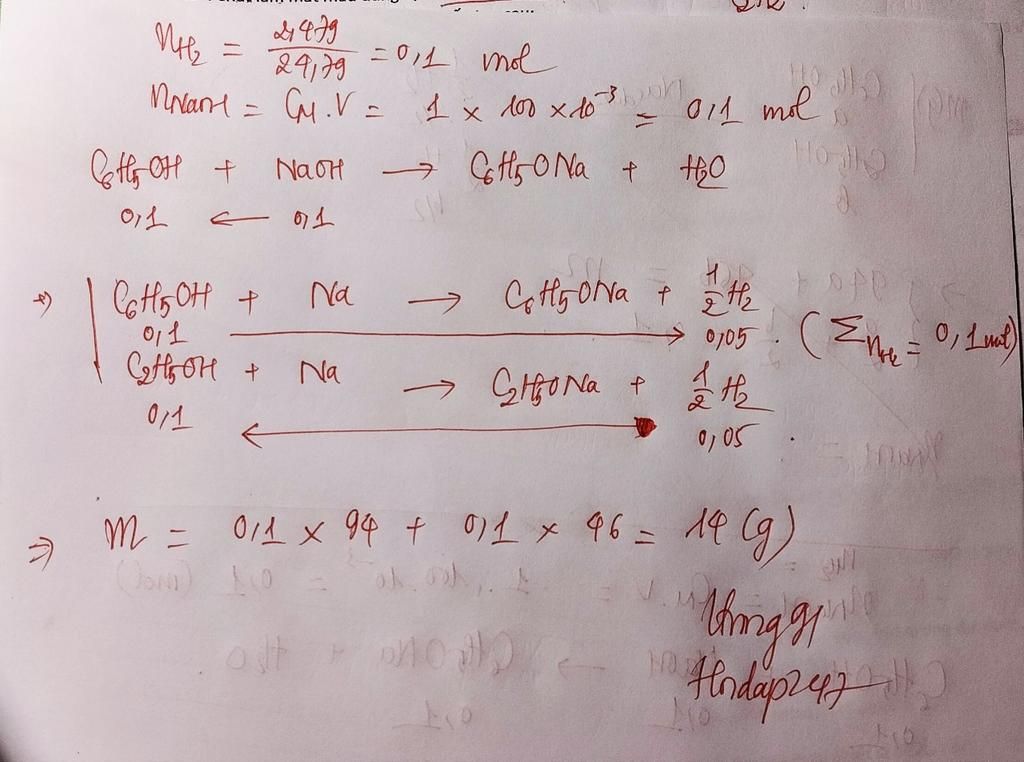 nH2 = 2,479 / 24,79 = 0,1 mol
nNaOH = CM.V = 1 × 100 ×10⁻³ = 0,1 mol
C6H5OH + NaOH → C6H5ONa + H2O
0,1 ← 0,1
⇒ C6H5OH + Na → C6H5ONa + 1/2 H2
0,1 → 0,05 . (ΣnH2 = 0,1 mol)
C2H5OH + Na → C2H5ONa + 1/2 H2
0,1 ← 0,05 .
⇒ m = 0,1 × 94 + 0,1 × 46 = 14 (g)
Hndap247